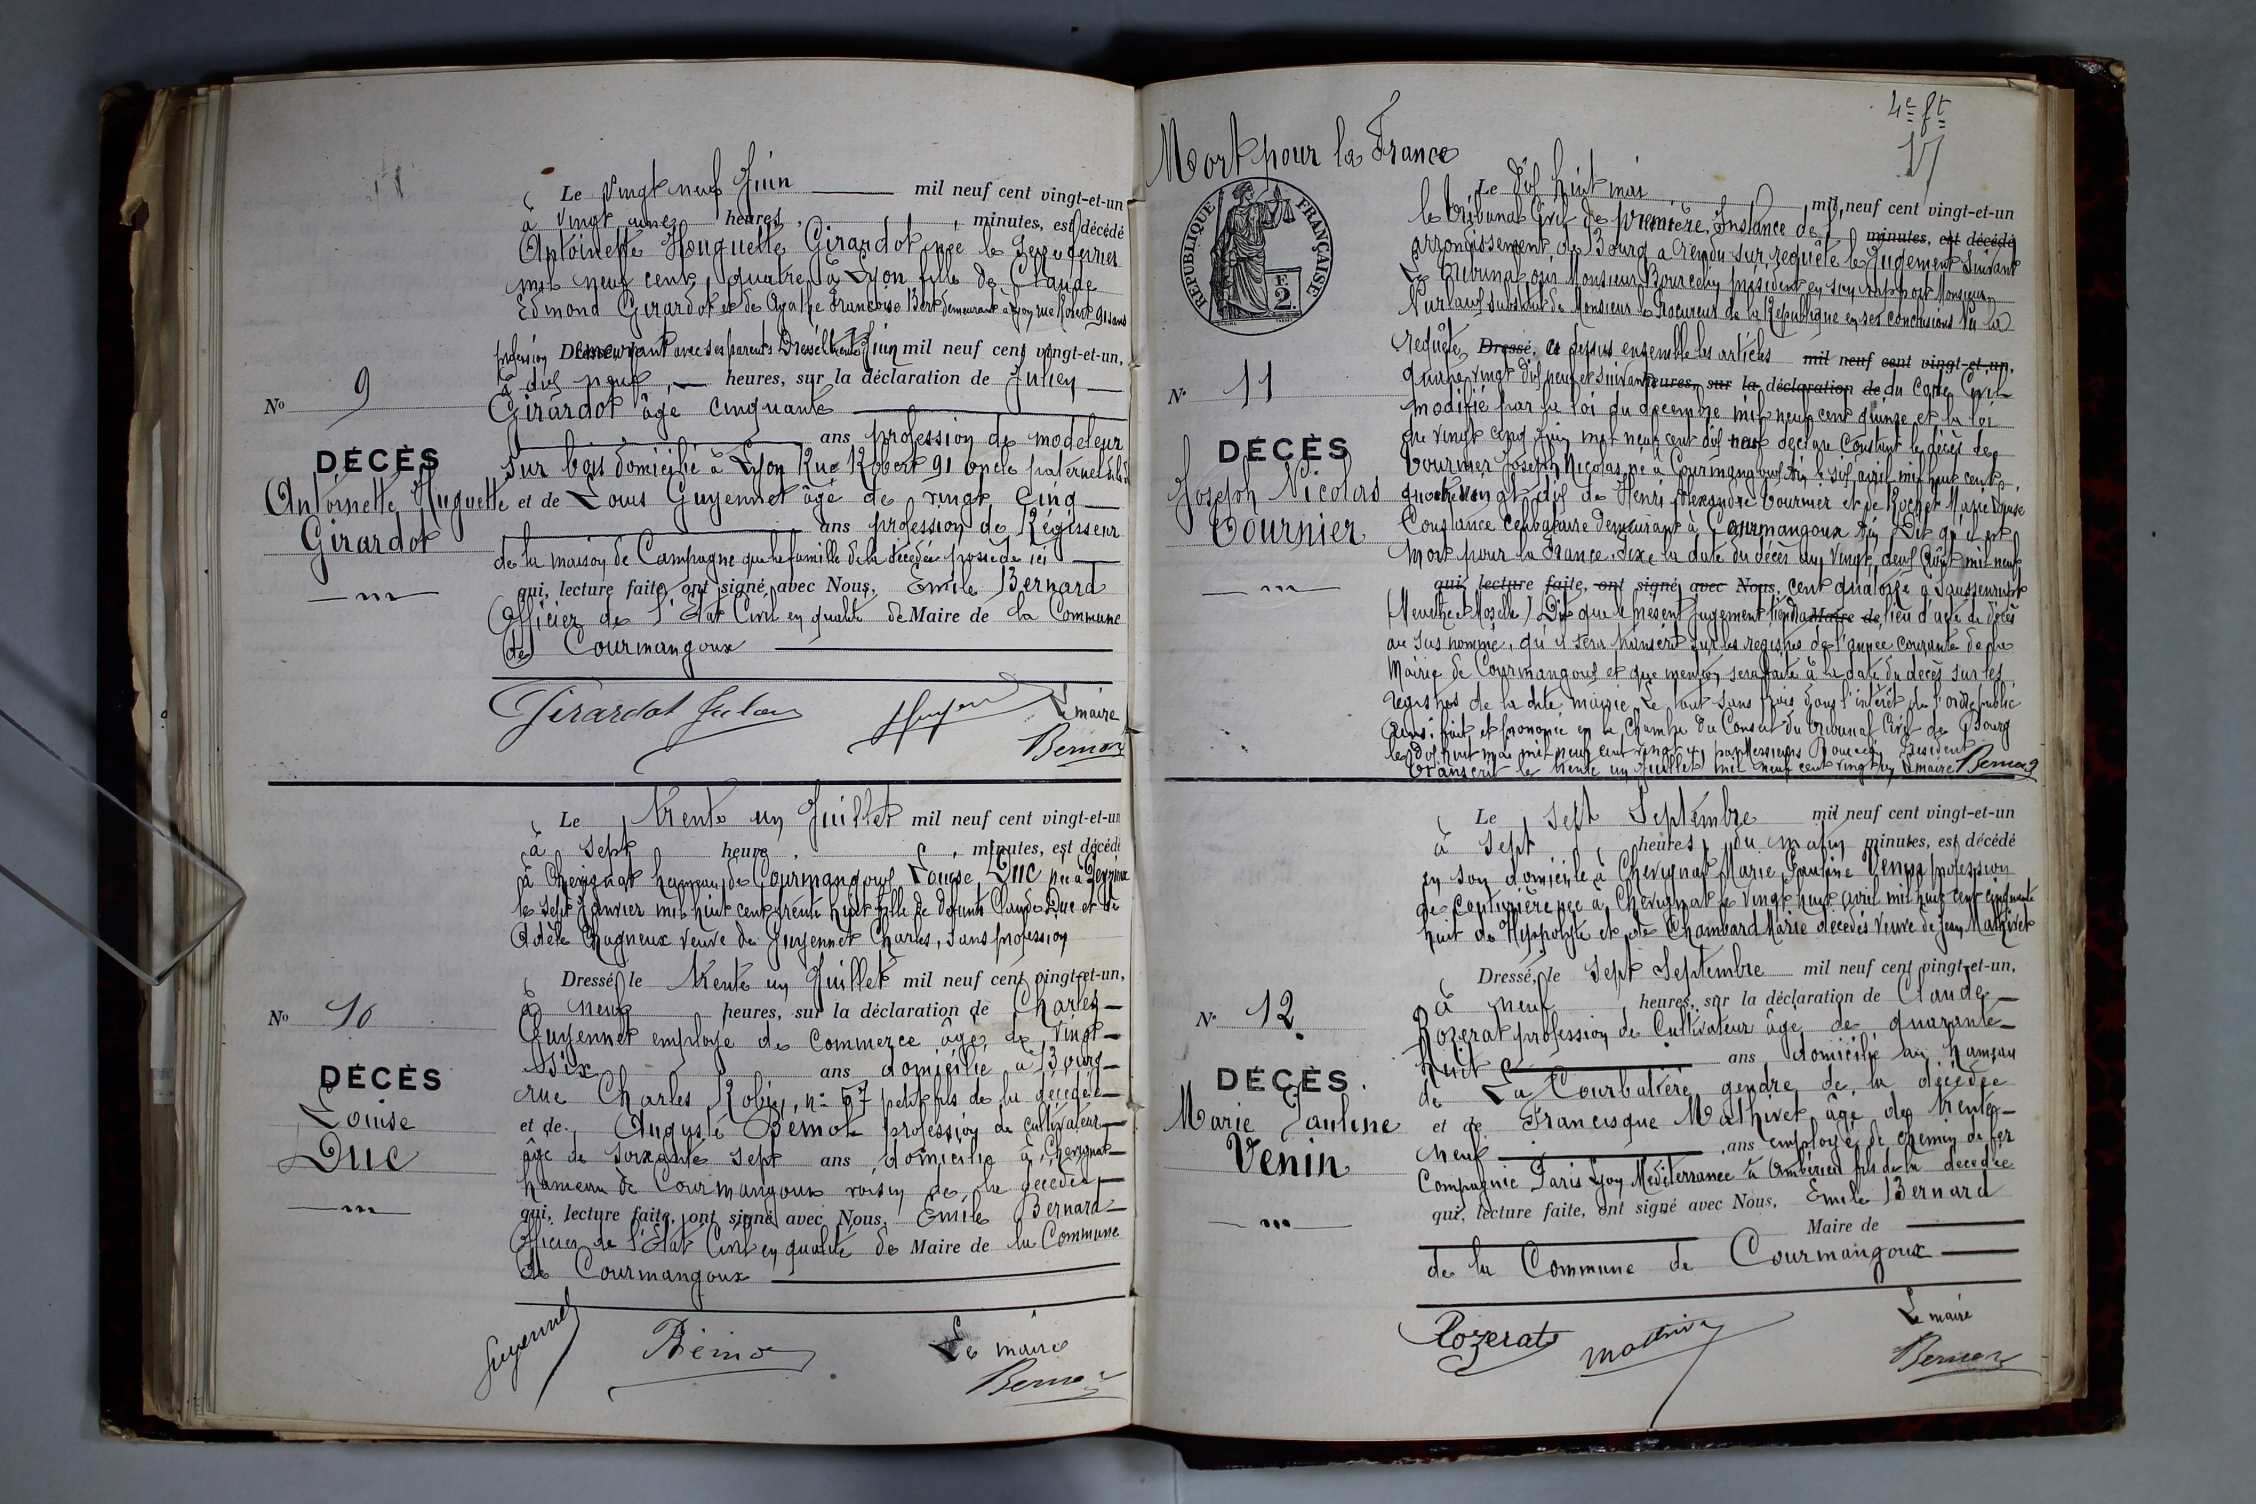 Le vingt neuf Juin mil neuf cent vingt-et-un
à vingt une heures, minutes, est décédé
Antoinette Houguette Girardot née le seize fevrier
mil neuf cent, quatre à Lyon fille de Claude
Edmond Girardot et de Agathe Francoise Bert demeurant à Lyon rue Robert 91 sans
profession Demeurant avec ses parents Dressé le trente Juin mil neuf cent vingt-et-un,
à dix neuf heures, sur la déclaration de Julien
Girardot âgé cinquante
ans profession de modeleur
Sur bois domicilié à Lyon Rue Robert 91 oncle paternel
et de Louis Guyennet âgé de vingt cinq
ans profession de Régisseur
de la maison de Campagne que la famille de la décédée possède ici
qui, lecture faite, ont signé avec Nous, Emile Bernard
Officier de l'Etat Civil en qualité de Maire de la Commune
de Courmangoux
Girardot Julien
Le maire
Bernard
No 9
DÉCÈS
Antoinette Huguette
Girardot
Le trente un Juillet mil neuf cent vingt-et-un
à sept heure, minutes, est décédé
à Chevignat hameau de Courmangoux Louise Duc née à
le sept Janvier mil huit cent trente huit fille de défunts Claude Duc et de
Adèle Chagneux veuve de Guyennet Charles, sans profession
Dressé, le trente un Juillet mil neuf cent vingt-et-un,
à neuf heures, sur la déclaration de Charles
Guyennet employé de Commerce âgé de vingt
six ans domicilié à Bourg
rue Charles Robin, n° 57 petit fils de la décédée
et de Auguste Bernot profession de cultivateur
âgé de soixante sept ans domicilié à Chevignat
hameau de Courmangoux voisin de la décédée
qui, lecture faite, ont signé avec Nous, Emile Bernard
Officier de l'Etat Civil en qualité de Maire de la Commune
de Courmangoux
Guyennet
Le maire
Bernard
No 10
DÉCÈS
Louise
Duc
4e ft
17
Mort pour la France
RÉPUBLIQUE FRANÇAISE
E
2
Le dix huit mai mil neuf cent vingt-et-un
le tribunal Civil de première Instance de l' minutes, est décédé
arrondissement de Bourg a rendu sur requête le Jugement Suivant
Le tribunal ouï Monsieur Bourcelin président en son rapport Monsieur
substitut de Monsieur le Procureur de la République en ses conclusions Vu la
requête Dressé, ci dessus ensemble les articles mil neuf cent vingt-et-un,
quatre vingt dix neuf et suivant heures, sur la déclaration de du Code Civil
modifié par la loi du décembre mil neuf cent quinze et la loi
du vingt cinq Juin mil neuf cent dix neuf déclare Constant le décès de
Tournier Joseph Nicolas né à Courmangoux Ain le six avril mil huit cent
quatre vingt dix de Henri Alexandre Tournier et de Rochet Marie Louise
Constance célibataire demeurant à Courmangoux Ain Dit qu'il est
mort pour la France. Fixe la date du décès au vingt deux Août mil neuf
qui, lecture faite, ont signé avec Nous, cent quatorze à
(Meurthe et Moselle) Dit que le présent Jugement tiendra Maire de lieu d'acte de décès
au sus nommé, qu'il sera transcrit sur les registres de l'année courante de la
Mairie de Courmangoux et que mention sera faite à la date du décès sur les
registres de la dite mairie Le tout sans frais dans l'intérêt de l'ordre public
Ainsi fait et prononcé en la Chambre du Conseil du tribunal Civil de Bourg
le dix huit mai mil neuf cent vingt un par Messieurs Bourcelin Président
Transcrit le trente un Juillet mil neuf cent vingt un Le maire Bernard
No 11
DÉCÈS
Joseph Nicolas
Tournier
Le sept Septembre mil neuf cent vingt-et-un
à sept heures du matin minutes, est décédé
en son domicile à Chevignat Marie Pauline Venin profession
de couturière née à Chevignat le vingt huit avril mil huit cent cinquante
huit de Hyppolyte et de Chambard Marie décédés Veuve de Jean Mathivet
Dressé, le sept Septembre mil neuf cent vingt-et-un,
à neuf heures, sur la déclaration de Claude
Rozerat profession de Cultivateur âgé de quarante
huit ans domicilié au hameau
de La Courbatière gendre de la décédée
et de Francisque Mathivet âgé de trente
neuf ans employé de chemin de fer
Compagnie Paris Lyon Méditerranée à Ambérieu fils de la décédée
qui, lecture faite, ont signé avec Nous, Emile Bernard
Maire de
de la Commune de Courmangoux
Rozerat
Mathivet
Le maire
Bernard
No 12
DÉCÈS.
Marie Pauline
Venin